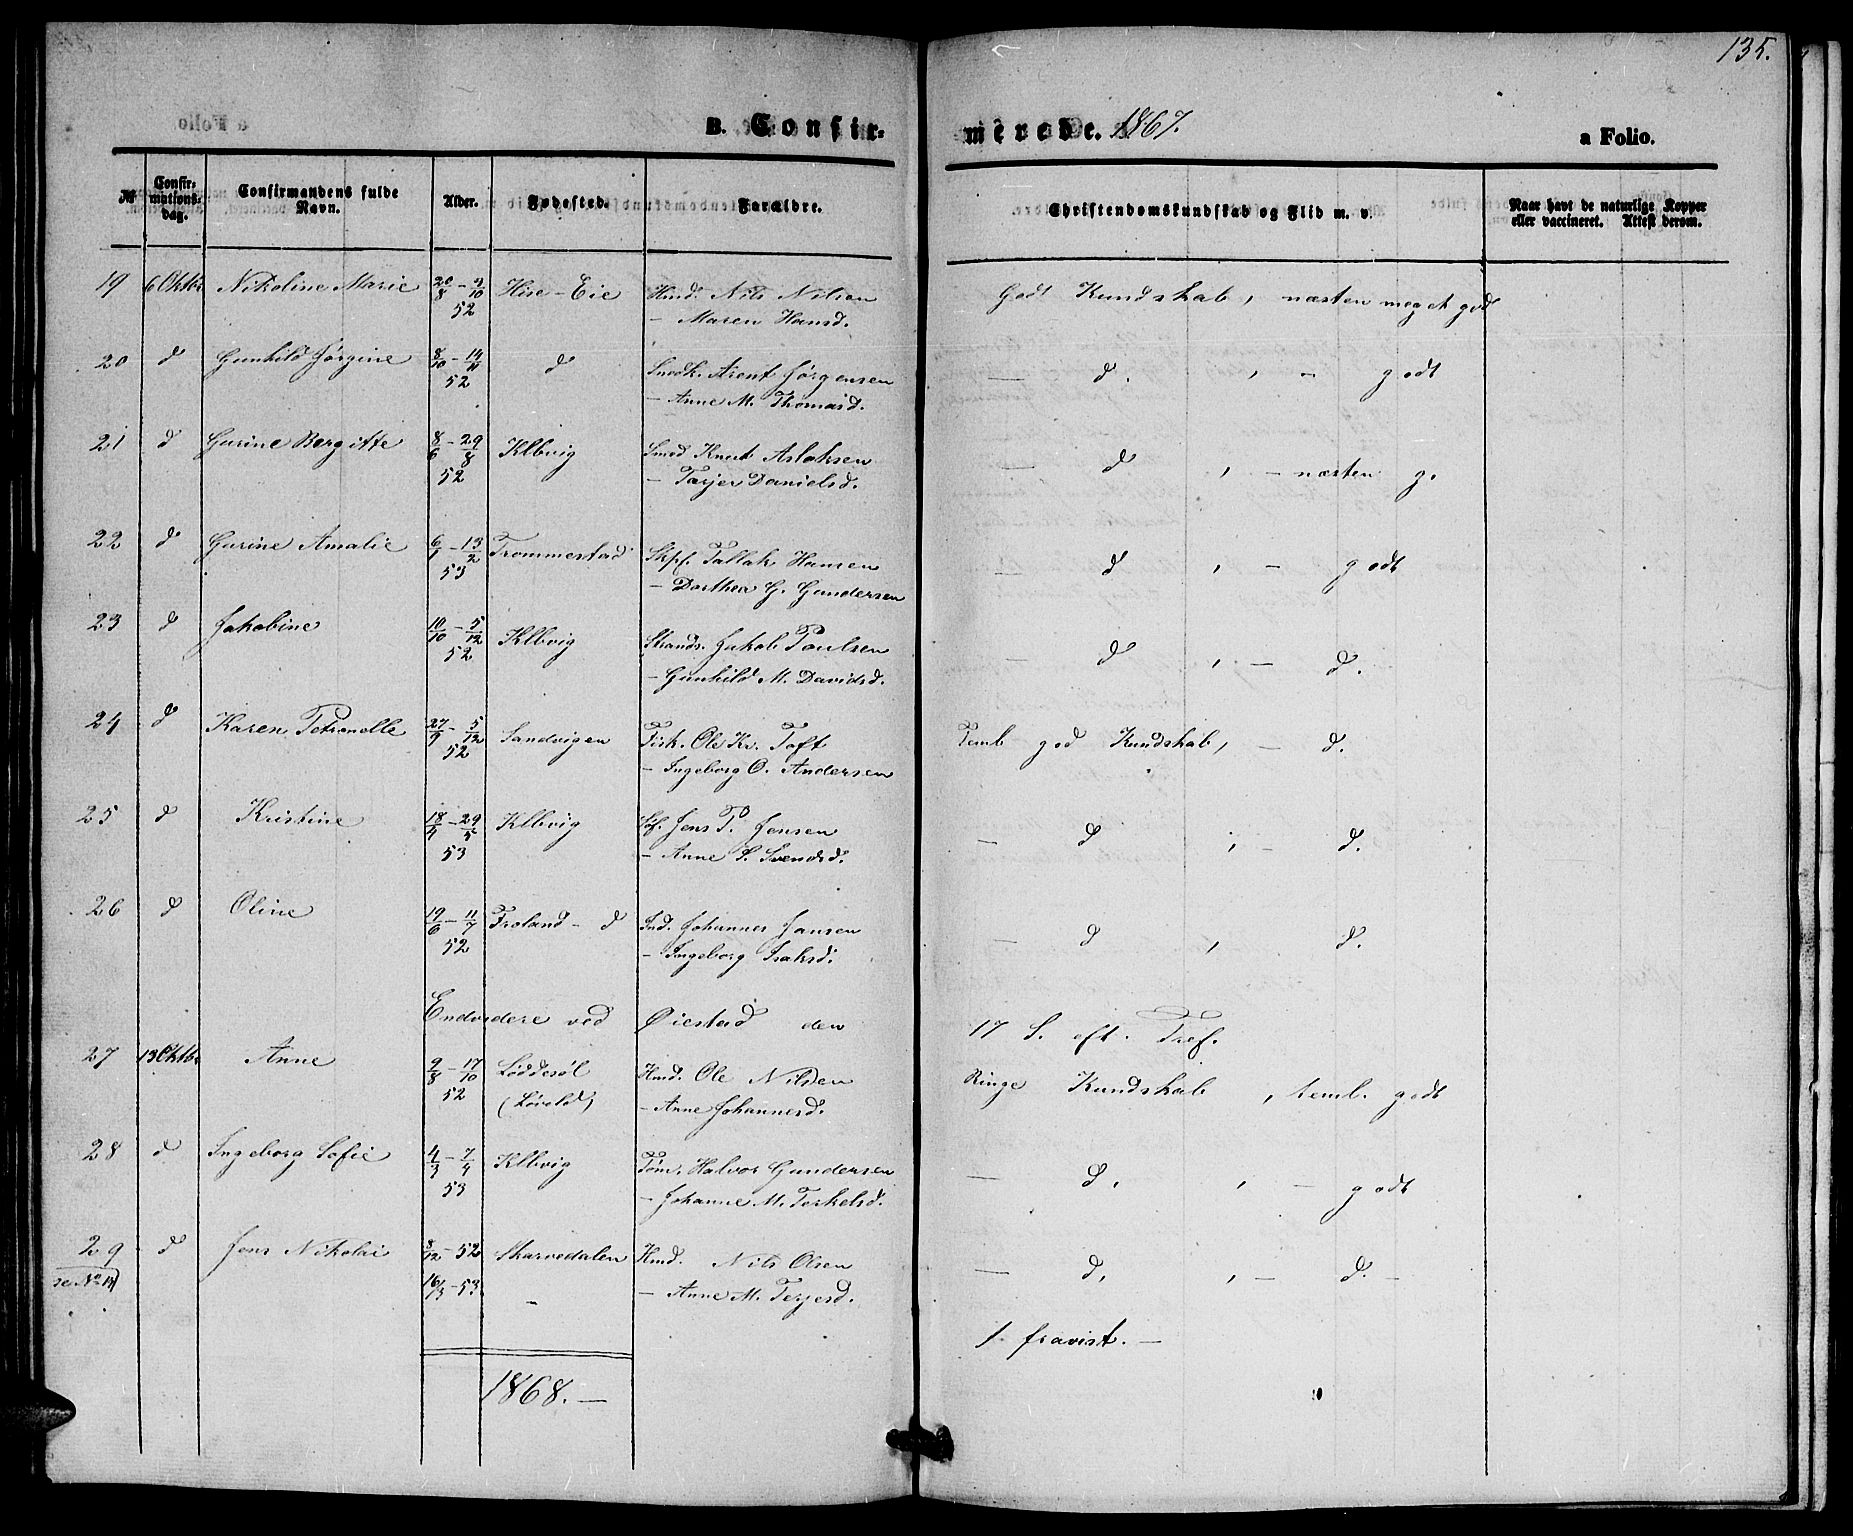 135.
B. Confir-
merede. 1867.
a Folio.
№
Confir-
mations-
dag.
Confirmandens fulde
Navn.
Alder.
Fødested.
Forældre.
Christendomskundskab og Flid m. v.
Naar havt de naturlige Kopper
eller vaccineret. Attest derom.
19 6 Oktbr Nikoline Marie 20/8 - 9/10 52 Hise - Eie Hmd. Nils Nilsen
- Maren Hansd.
Godt Kundskab, næsten meget god
20 d Gunhild Jørgine 8/10 - 14/11 52 d Snedk. Arent Jørgensen
- Anne M. Thomasd.
— d. , - godt
21 d Gurine Bergitte 8/6 - 29/8 52 Klbvig Smed Knut Aslaksen
- Tarjer Danielsd.
— d , - næsten g.
22 d Gurine Amalie 6/1 - 13/2 53 Trommestad Skpf. Tallak Hansen
- Dorthea G. Gundersen
— d , - godt
23 d Jakobine 10/10 - 5/12 52 Klbvig Strands. Jakob Paulsen
- Gunhild M. Davidsd.
— d , - d.
24 d Karen Petronelle 27/9 - 5/12 52 Sandvigen Fisk. Ole Kr. Toft
- Ingeborg O. Andersen
Teml god Kundskab, - d.
25 d Kristine 18/4 - 29/5 53 Klbvig Jens P. Jensen
- Anne S. Svendsd.
— d , - d.
26 d Oline 19/6 - 11/7 52 Froland - d Ind. Johannes Jansen
- Ingeborg Isaksd.
— d , d.
Endvidere ved Øiestad den 17 S. eft. Tref.
27 13 Oktbr Anne 9/8 - 17/10 52 Løddesøl Hmd. Ole Nilsen
(Løveld) - Anne Johannesd.
Ringe Kundskab, teml. godt
28 d Ingeborg Sofie 4/3 - 7/4 53 Klbvig Tøm. Halvor Gundersen
- Johanne M. Terkelsd.
— d. , - godt
29 d Jens Nikolai 8/12 - 52 Skarvedalen Hmd. Nils Olsen
se No 14 16/3 - 53 - Anne M. Terjesd.
— d. , - d. -
1 fravist. —
1868. —